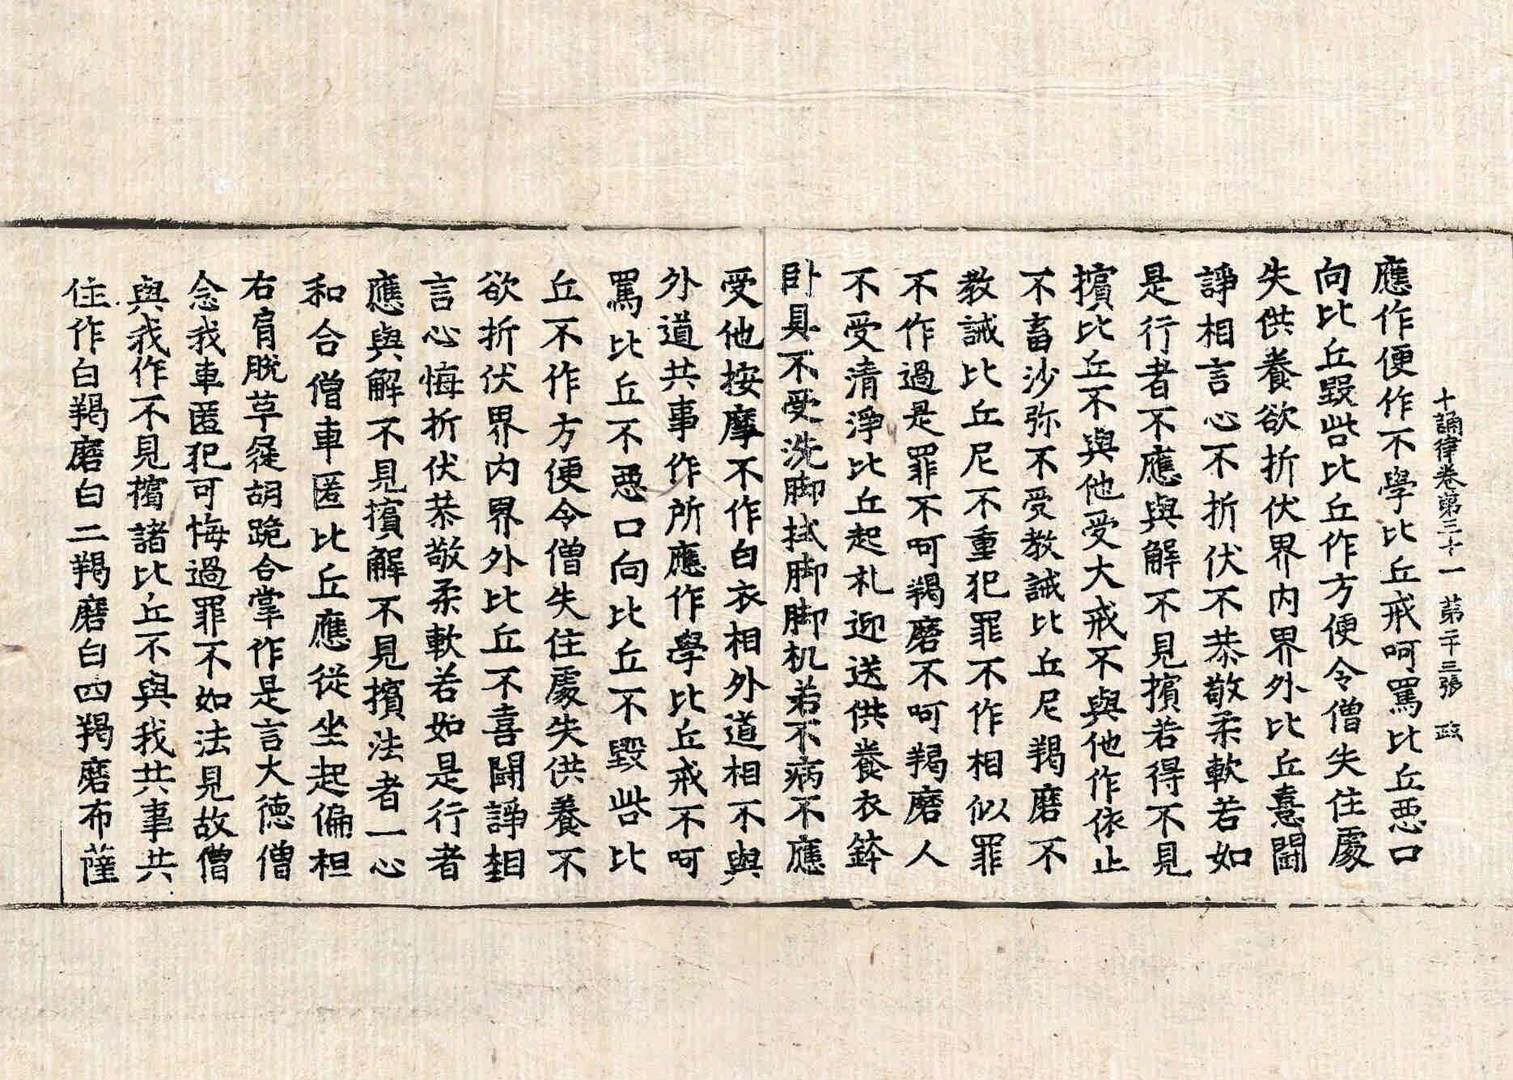 十誦律卷第三十一 第二十三張 政
應作便作不學比丘戒呵罵比丘惡口
向比丘毀呰比丘作方便令僧失住處
失供養欲折伏界內界外比丘憙鬪
諍相言心不折伏不恭敬柔軟若如
是行者不應與解不見擯若得不見
擯比丘不與他受大戒不與他作依止
不畜沙弥不受教誡比丘尼羯磨不
教誡比丘尼不重犯罪不作相似罪
不作過是罪不呵羯磨不呵羯磨人
不受清淨比丘起礼迎送供養衣鉢
卧具不受洗脚拭脚脚机若不病不應
受他按摩不作白衣相外道相不與
外道共事作所應作學比丘戒不呵
罵比丘不惡口向比丘不毀呰比
丘不作方便令僧失住處失供養不
欲折伏界內界外比丘不喜鬪諍相
言心悔折伏恭敬柔軟若如是行者
應與解不見擯解不見擯法者一心
和合僧車匿比丘應從坐起偏袒
右肩脫草屣胡跪合掌作是言大德僧
念我車匿犯可悔過罪不如法見故僧
與我作不見擯諸比丘不與我共事共
住作白羯磨白二羯磨白四羯磨布薩